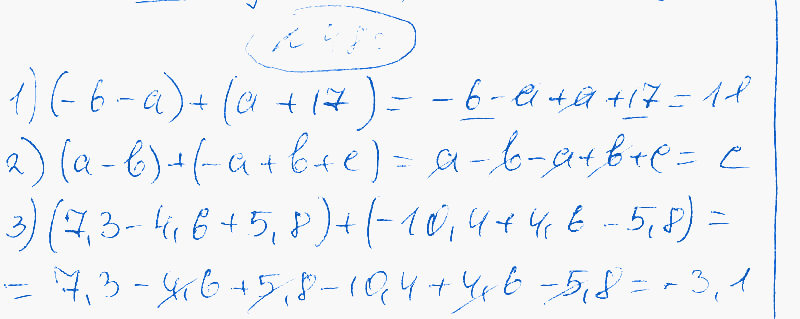 1) (-6-a)+(a+17) = -6-a+a+17=11
2) (a-b)+(-a+b+c) = a-b-a+b+c= c
3) (7,3-4,6+5,8)+(-10,4+4,6-5,8)=
= 7,3-4,6+5,8-10,4+4,6-5,8=-3,1